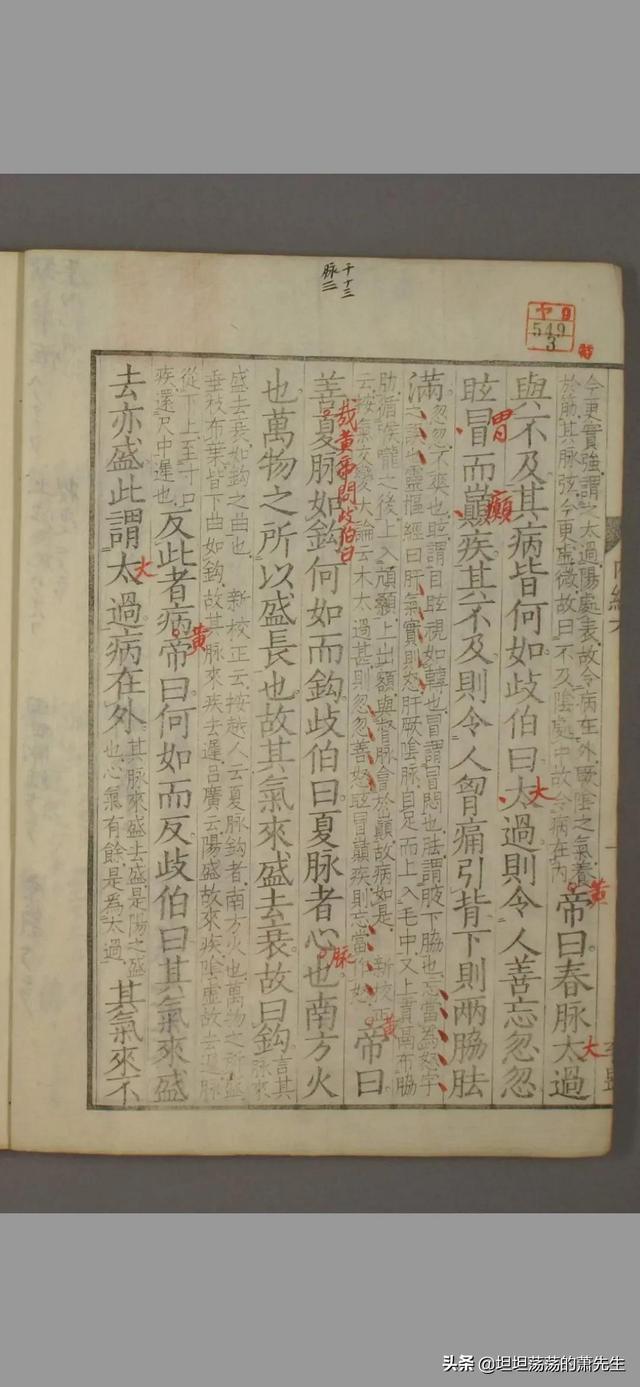 千十三
脉三
中日
549
3
今更實強謂之太過陽處表故令病在外厥陰之氣養
於筋其脉弦今更虛微故曰不及陰處中故令病在内
帝曰春脉太過
黄
大
與不及其病皆何如歧伯曰太過則令人善忘忽忽
大
眩冒而巔疾其不及則令人胷痛引背下則兩脇胠
胃
癲
滿
忽忽不爽也眩謂目眩視如轉也冒謂冒悶也胠謂腋下脇也忘當為怒字
之誤也靈樞經曰肝氣實則怒肝厥陰脉自足而上入毛中又上貫鬲布脇
肋循喉嚨之後上入頏顙上出額與督脉會於巔故病如是新校正
云按氣交變大論云木太過甚則忽忽善怒眩冒巔疾則忘當作怒
帝曰
黄
善夏脉如鈎何如而鈎歧伯曰夏脉者心也南方火
哉黄帝問歧伯曰
脉
也萬物之所以盛長也故其氣來盛去衰故曰鈎
言其
脉來
盛去衰如鈎之曲也新校正云按越人云夏脉鈎者南方火也萬物之所盛
垂枝布葉皆下曲如鈎故其脉來疾去遲吕廣云陽盛故來疾陰虛故去遲脉
從下上至寸口
疾還尺中遲也
反此者病帝曰何如而反歧伯曰其氣來盛
黄
去亦盛此謂太過病在外
大
其脉來盛去盛是陽之盛
也心氣有餘是爲太過
其氣來不
头条 @坦坦荡荡的萧先生